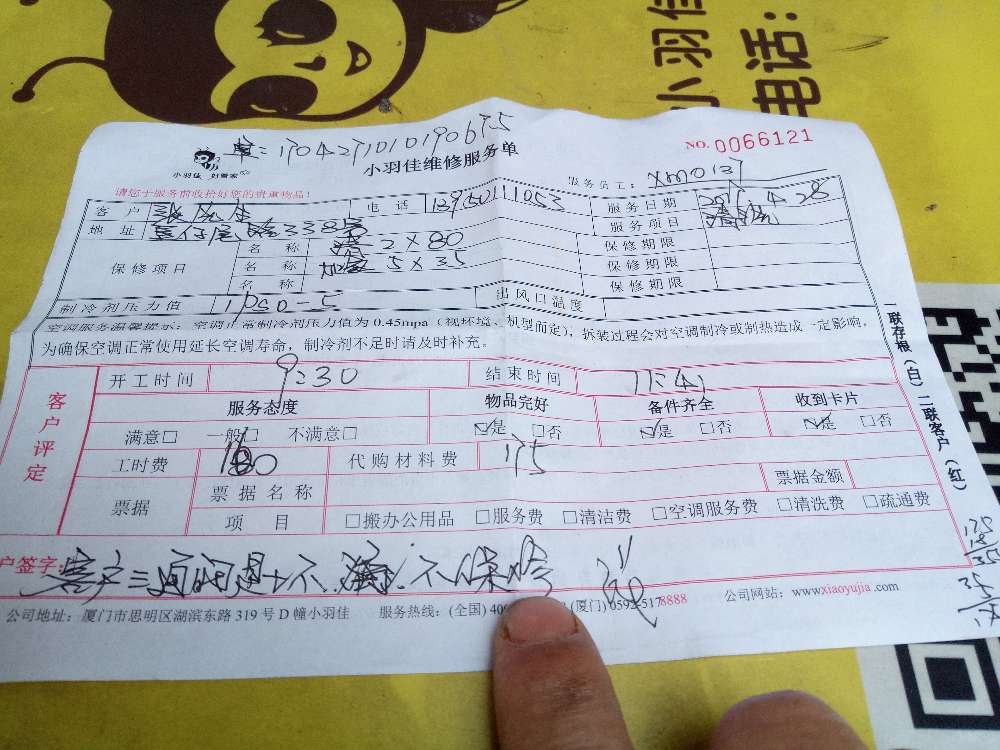 小羽佳
电话:
单:17042710101906175
NO. 0066121
小羽佳 好管家
小羽佳维修服务单
服务员工: xm0137
请您于服务前收拾好您的贵重物品!
客户 张先生 电话 13950111053 服务日期 2017 4 28
地址 338号 服务项目 清洗
保修项目 名称 清 2×80 保修期限
名称 加 5×35 保修期限
名称 保修期限
制冷剂压力值 出风口温度
空调服务温馨提示:空调正常制冷剂压力值为0.45mpa(视环境、机型而定),拆装过程会对空调制冷或制热造成一定影响,
为确保空调正常使用延长空调寿命,制冷剂不足时请及时补充。
客户评定
开工时间 9:30 结束时间 11:41
服务态度 物品完好 备件齐全 收到卡片
满意□ 一般□ 不满意□ ☑是 □否 ☑是 □否 ☑是 □否
工时费 160 代购材料费 175
票据 票据名称 票据金额
项目 □搬办公用品 □服务费 □清洁费 □空调服务费 □清洗费 □疏通费
户签字: 客户三 不 不保修
公司地址:厦门市思明区湖滨东路319号D幢小羽佳 服务热线:(全国) (厦门) 0592-5178888 公司网站:www.xiaoyujia.com
一联存根(白) 二联客户(红)
175
35